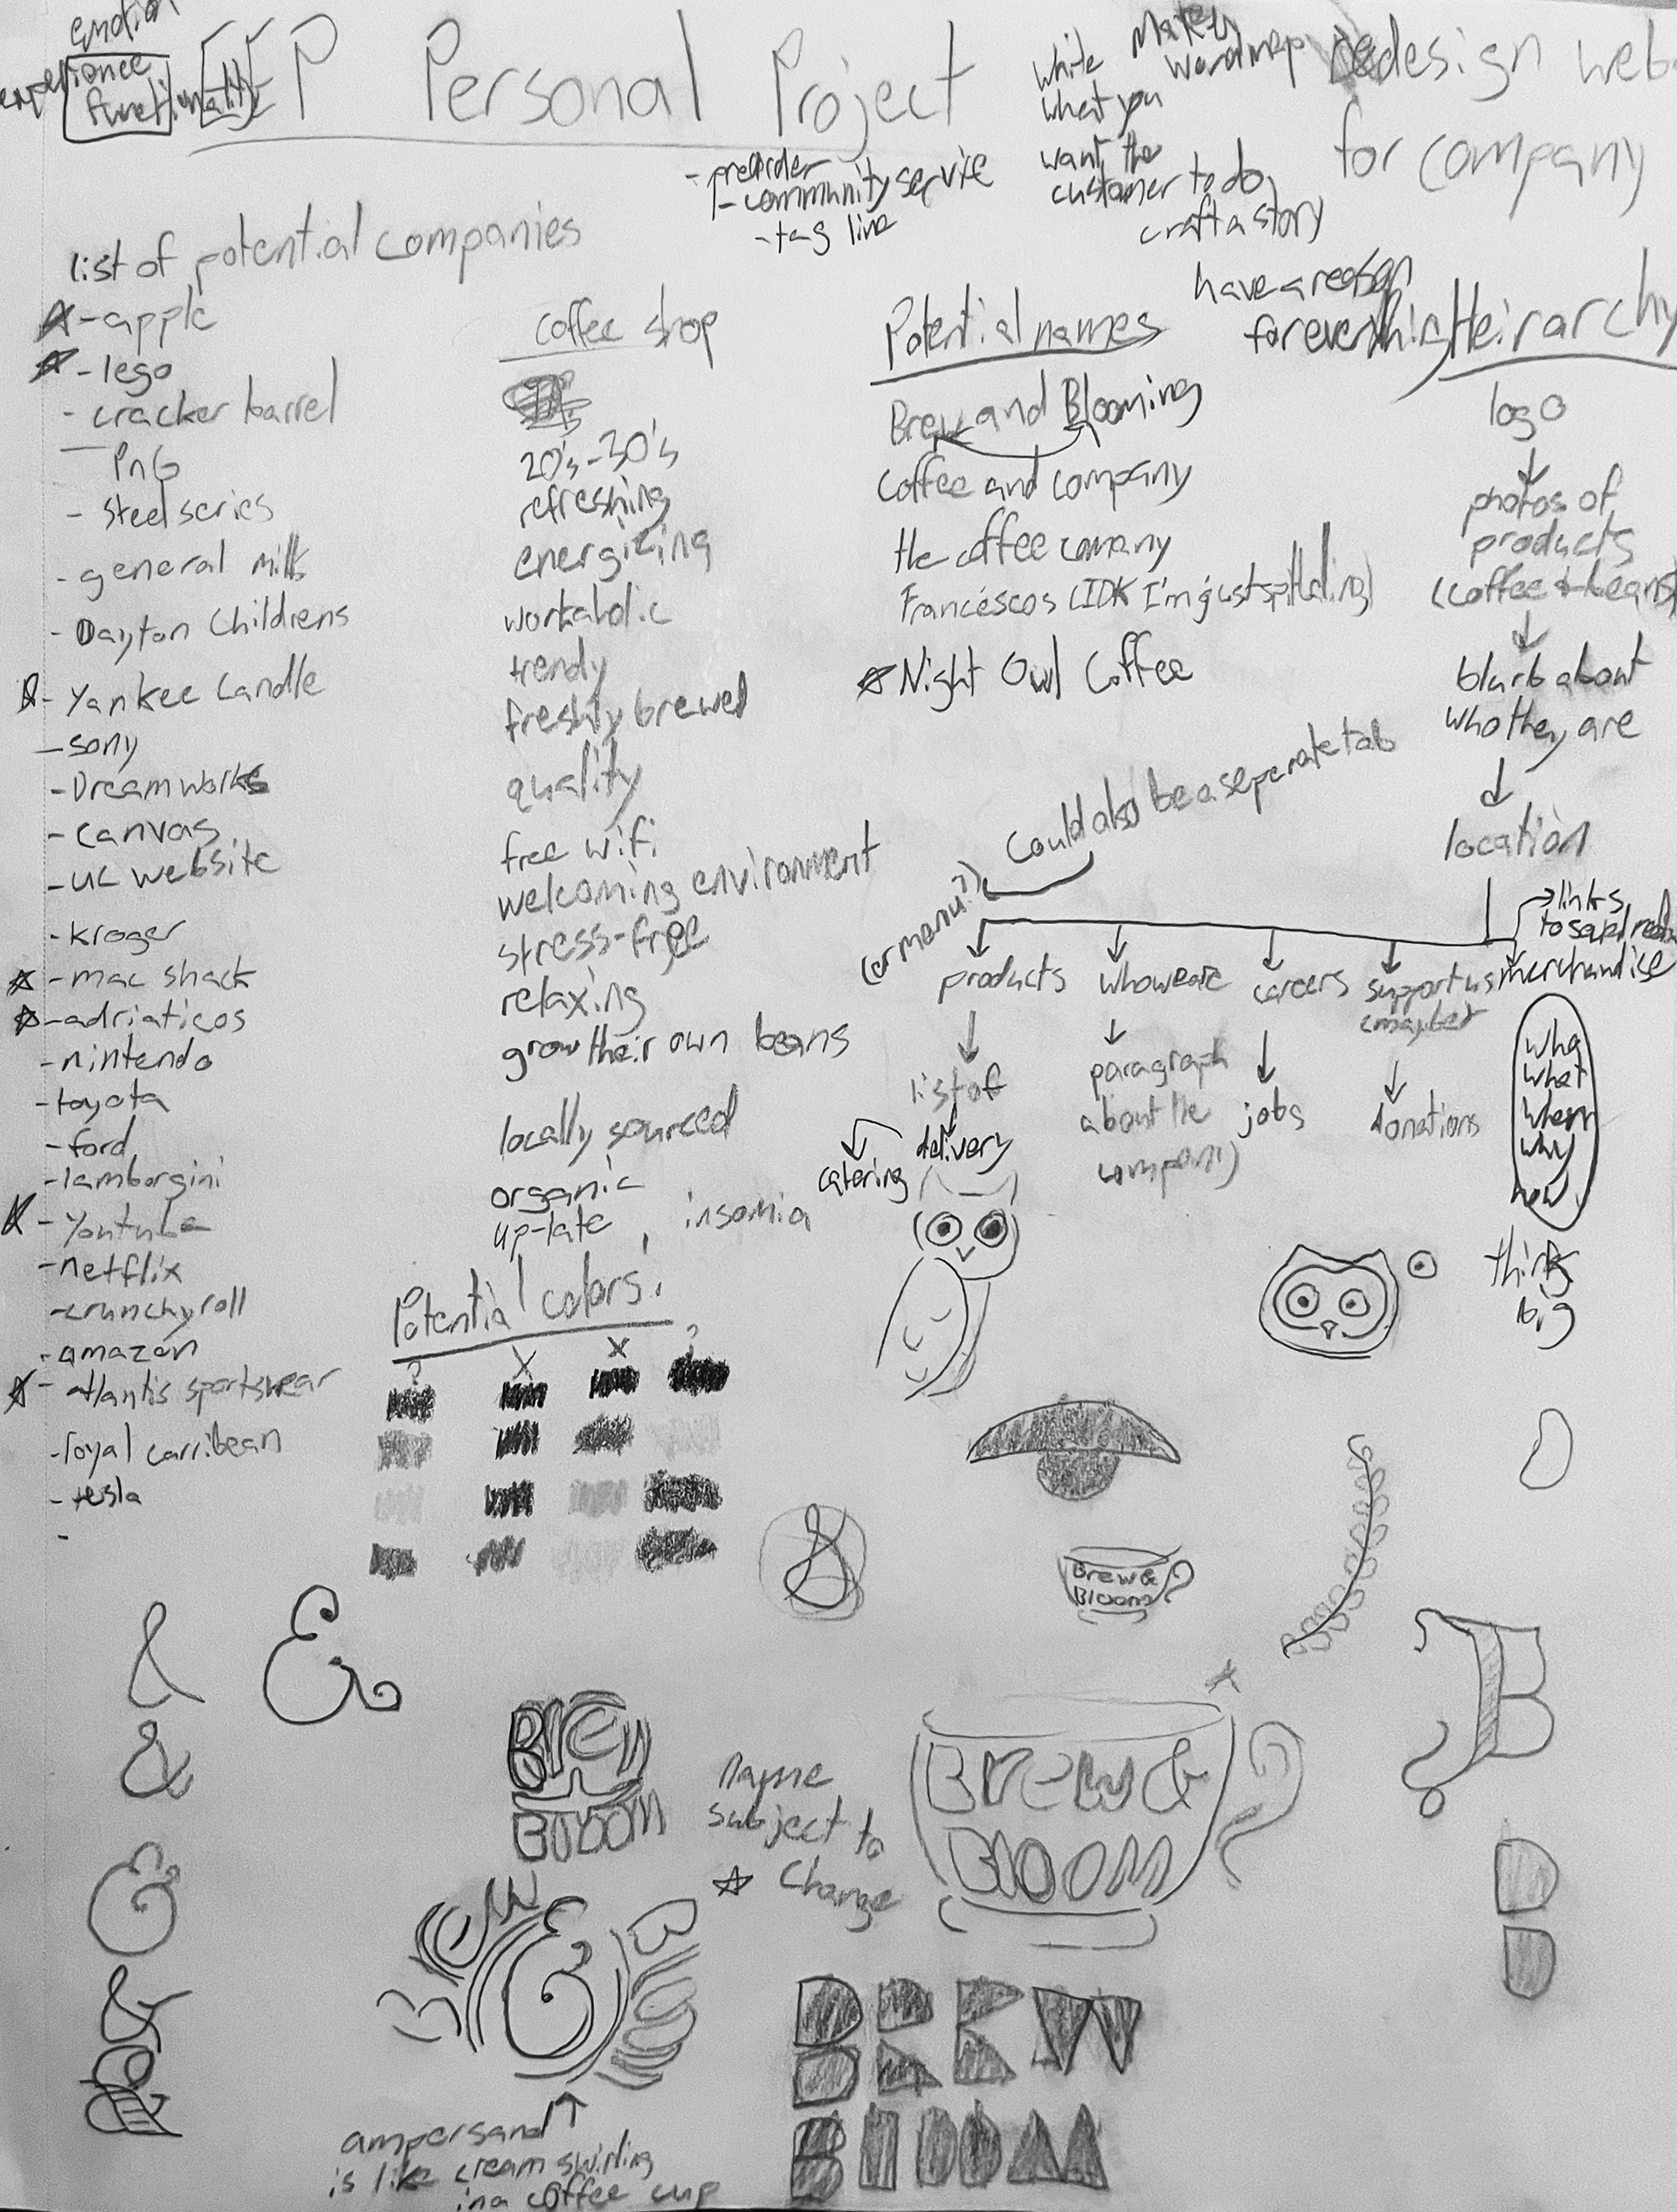 emotion
experience
functionality
P Personal Project
- preorder
- community service
- tag line
write
what you
want the
customer to do
craft a story
Make
word map
redesign web
for company
have a reason
for everything
list of potential companies
- apple
- lego
- cracker barrel
PnG
- Steelseries
- general mills
- Dayton Childrens
- Yankee Candle
- sony
- Dreamworks
- canvas
- UC website
- kroger
- mac shack
- adriaticos
- nintendo
- toyota
- ford
- lamborgini
- Youtube
- netflix
- crunchyroll
- amazon
- atlantis sportswear
- royal carribean
- tesla
-
coffee shop
20's-30's
refreshing
energizing
workaholic
trendy
freshly brewed
quality
free wifi
welcoming environment
stress-free
relaxing
grow their own beans
locally sourced
organic
up-late, insomia
Potential names
Brew and Blooming
Coffee and company
the coffee comany
Francescos (IDK I'm just spitballing)
Night Owl Coffee
Heirarchy
logo
photos of
products
(coffee & beans)
blurb about
who they are
location
could also be a seperate tab
(or menu?)
products
who we are
careers
support us
(maybe)
merchandise
links
to social media
list of
delivery
catering
paragraph
about the
company
jobs
donations
who
what
when
why
how
think
big
Potential colors:
? X X ?
&
Brew &
Bloom
& &
&
&
&
&
Brew
Bloom
name
subject to
change
Brew &
Bloom
B
Brew & Bloom
ampersand
is like cream swirling
in a coffee cup
BREW
BLOOM